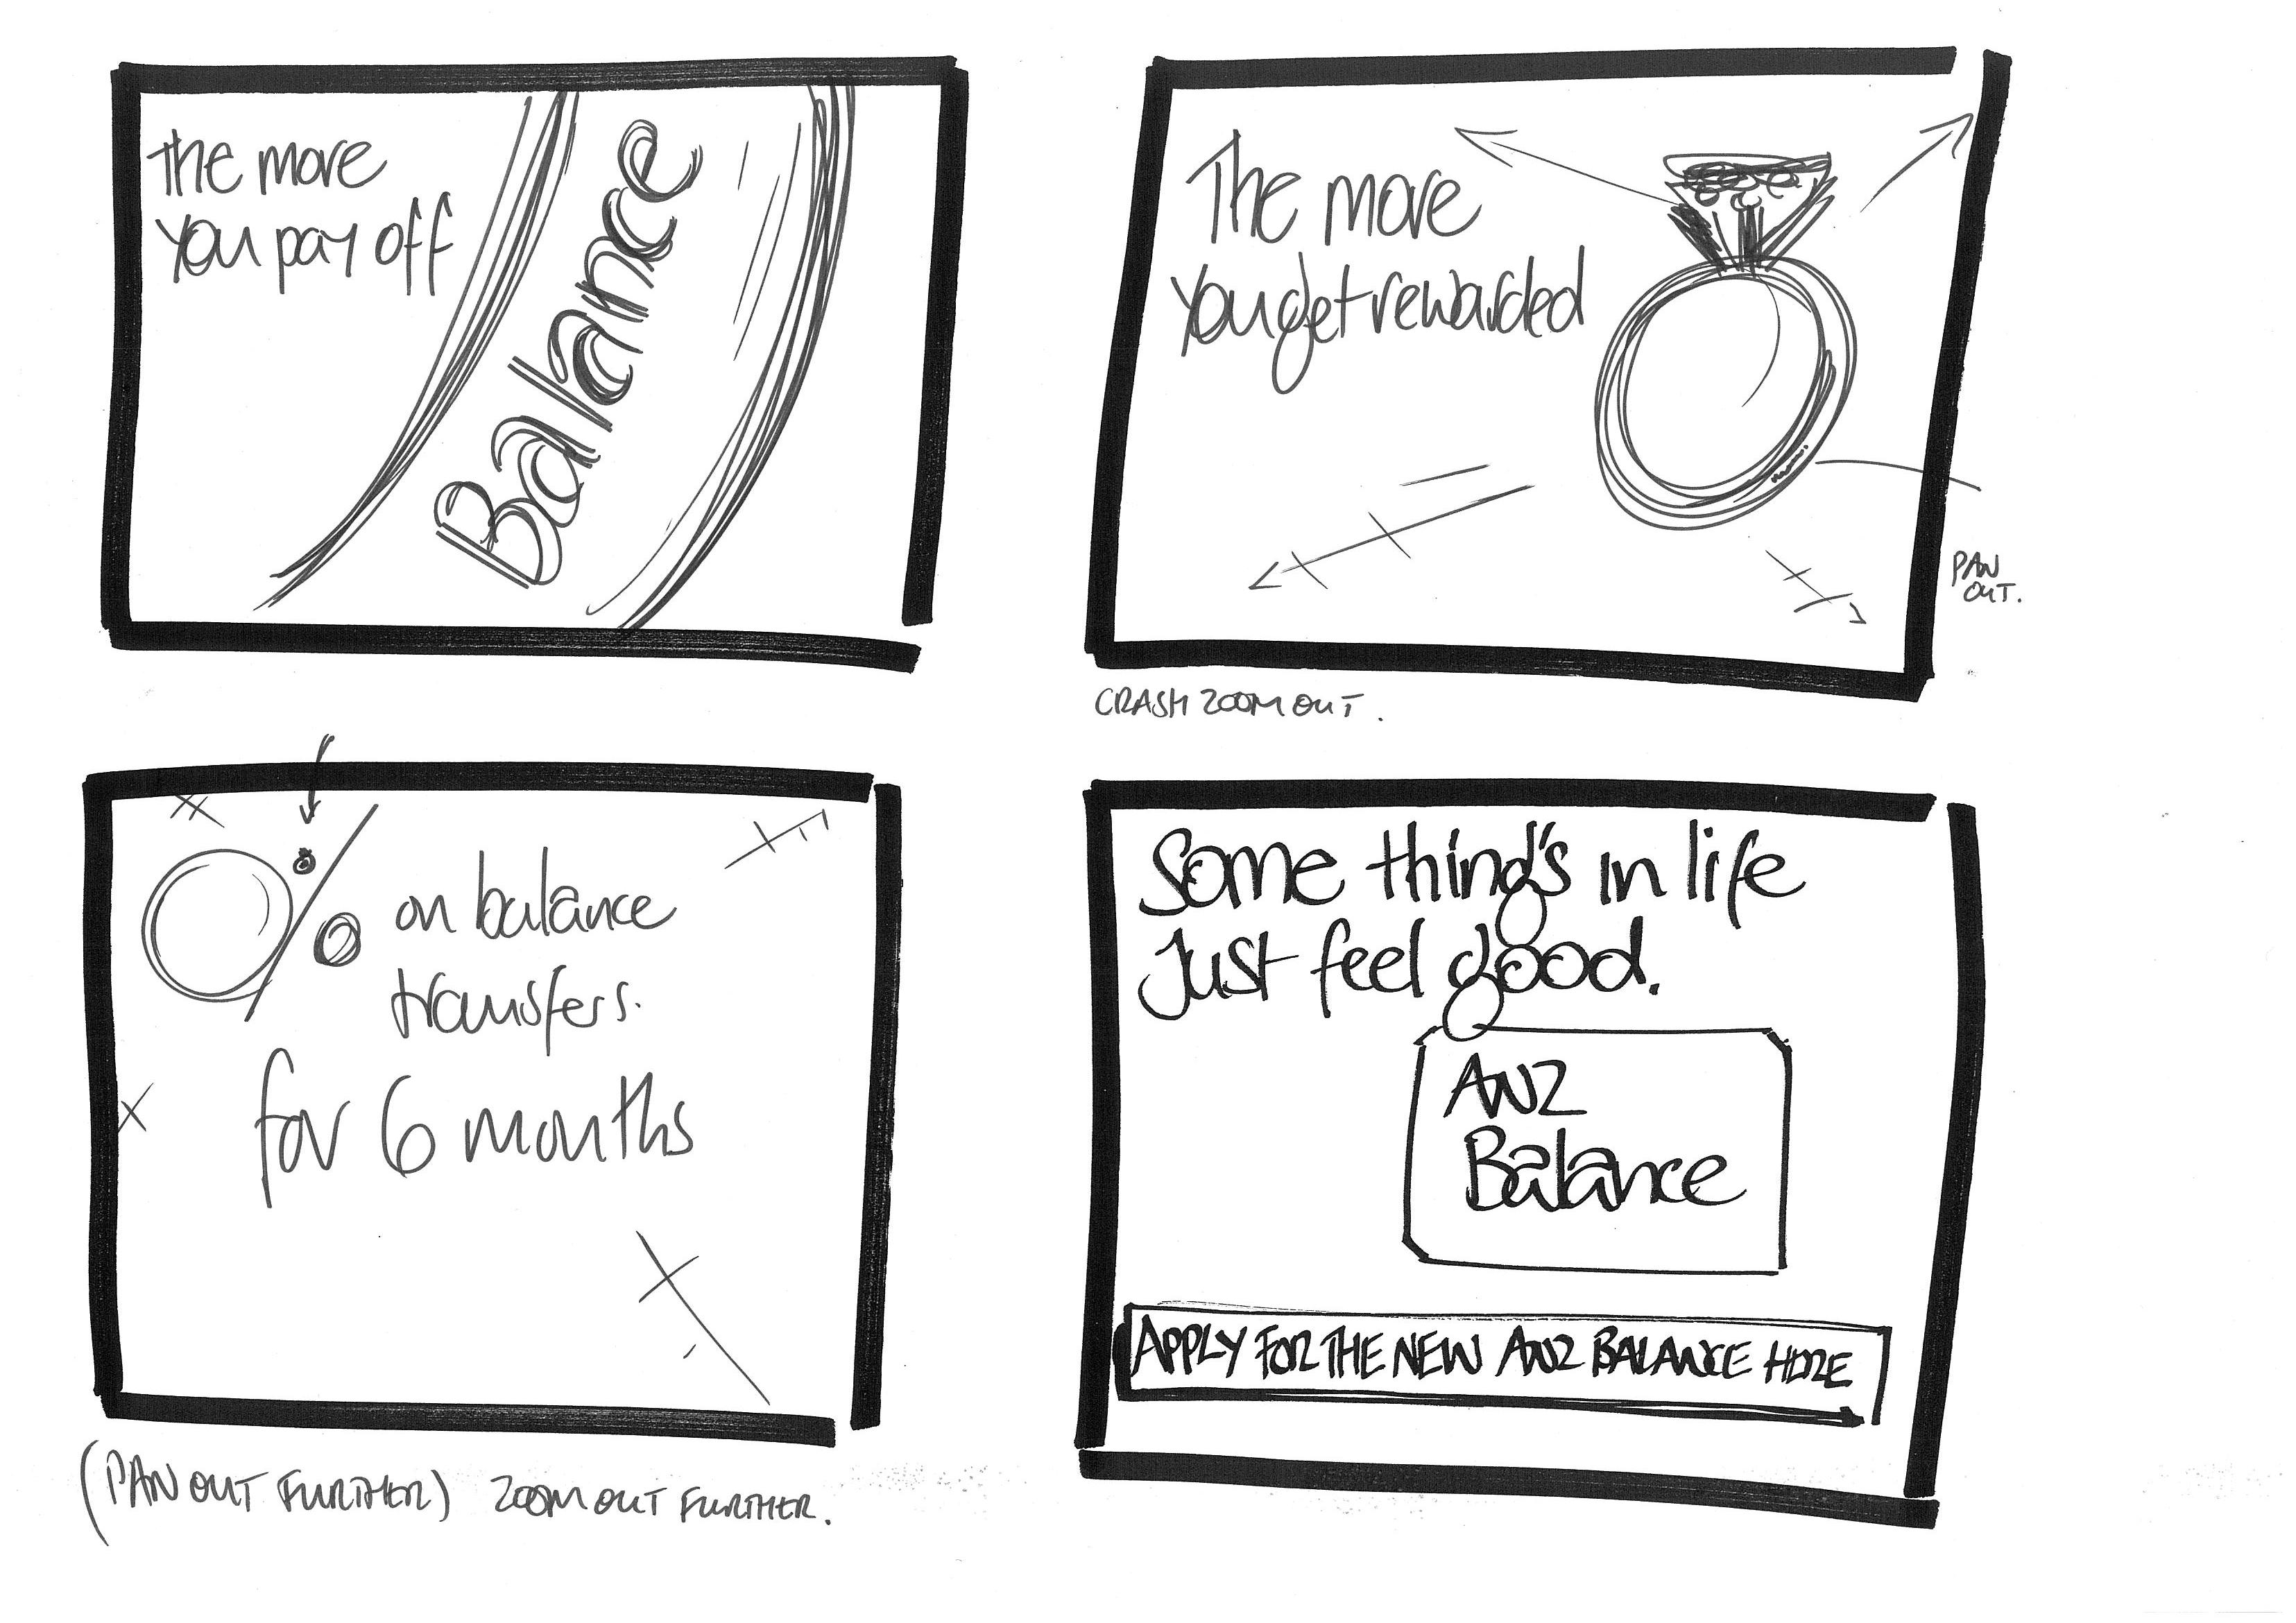 The more
you pay off
Balance
The more
you get rewarded
PAN
OUT.
CRASH ZOOM OUT.
0% on balance
transfers.
for 6 months
(PAN OUT FURTHER) ZOOM OUT FURTHER.
Some thing's in life
Just feel good.
ANZ
Balance
APPLY FOR THE NEW ANZ BALANCE HERE